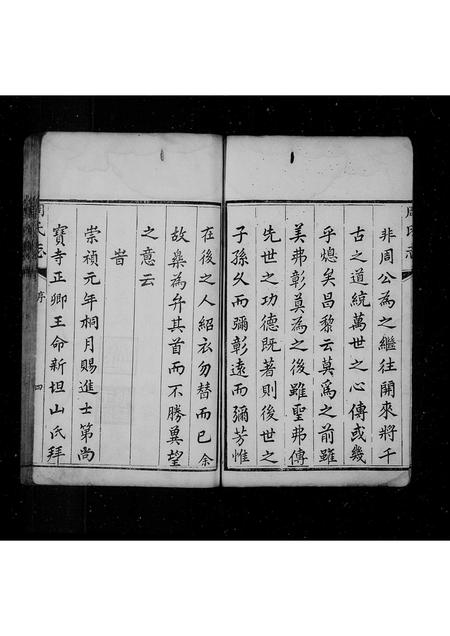 周氏志
非周公為之繼往開來將千
古之道統萬世之心傳或幾
乎熄矣昌黎云莫為之前雖
美弗彰莫為之後雖聖弗傳
先世之功德既著則後世之
子孫久而彌彰遠而彌芳惟
在後之人紹衣勿替而已余
故樂為弁其首而不勝冀望
之意云
旹
崇禎元年桐月賜進士第尚
寶寺正卿王命新坦山氏拜
周氏志
序
四